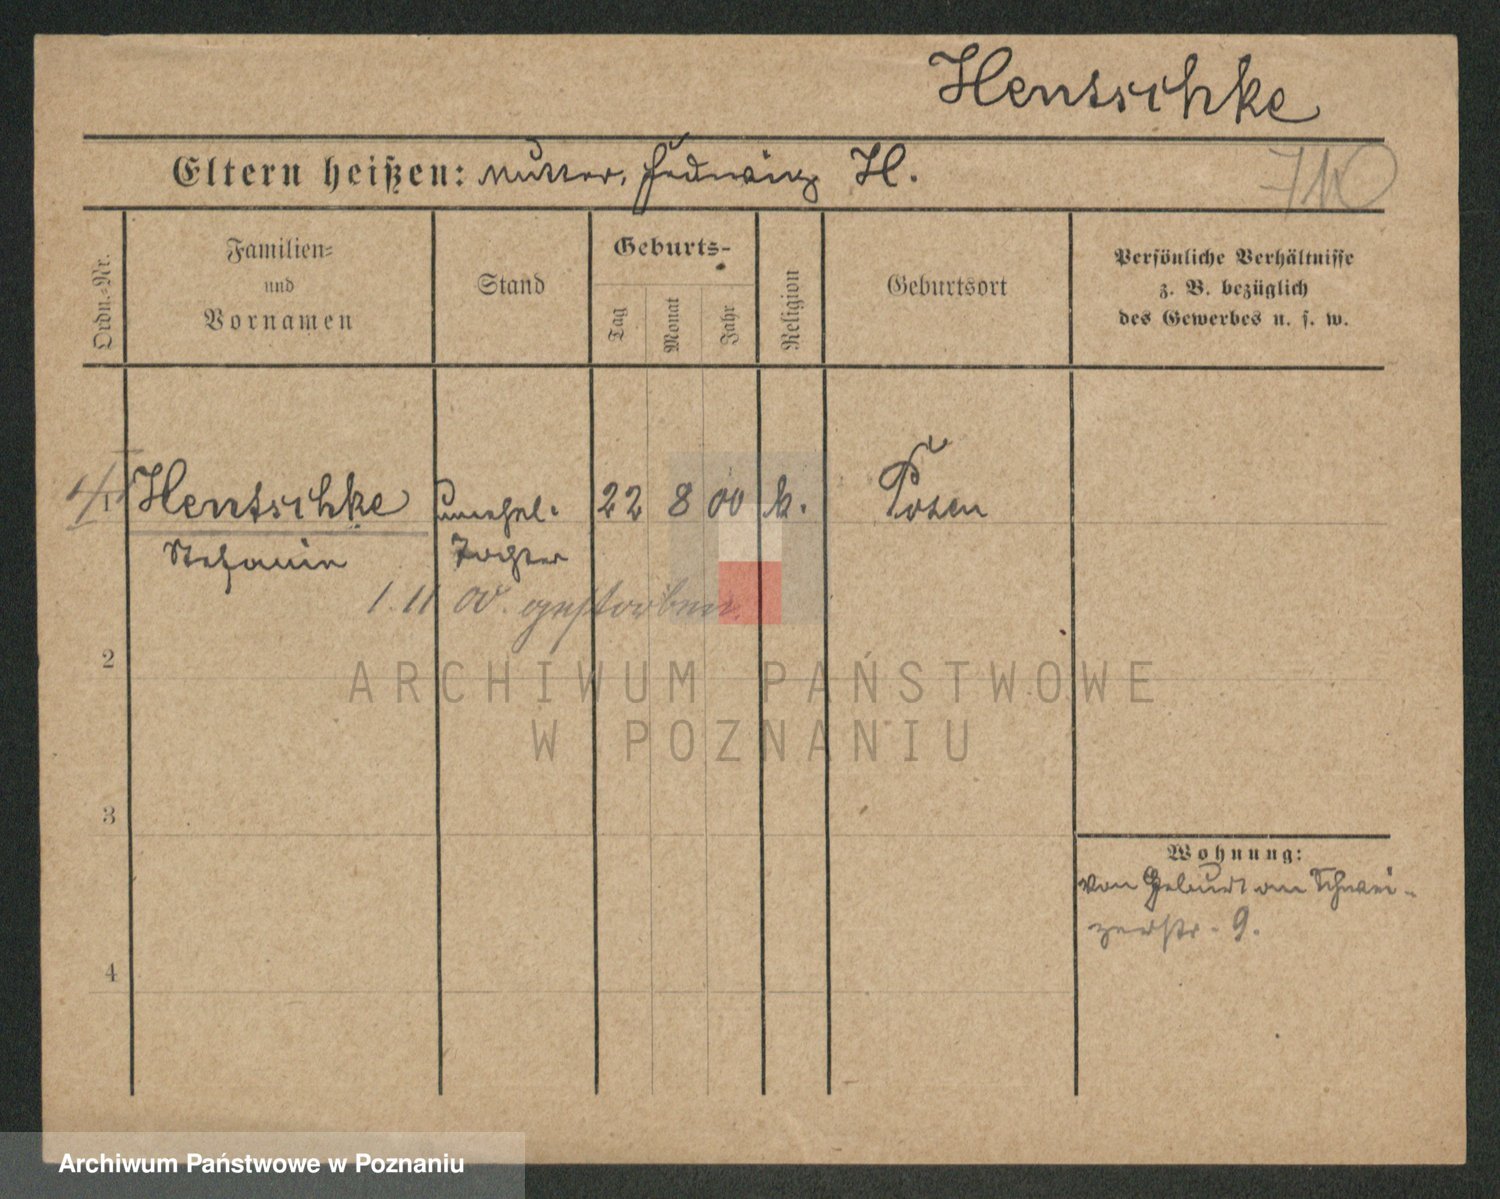 Hentschke
Eltern heißen: Mutter, Hedwig H.
Ordn.-Nr.
Familien-
und
Vornamen
Stand
Geburts-
Tag
Monat
Jahr
Religion
Geburtsort
Persönliche Verhältnisse
z. B. bezüglich
des Gewerbes u. s. w.
1 Hentschke unehel. 22 8 00 k. Posen
Stefanie Tochter
1. 11 00. gestorben.
2
ARCHIWUM PAŃSTWOWE
W POZNANIU
3
Wohnung:
von Geburt an Schwei-
zerstr. 9.
4
Archiwum Państwowe w Poznaniu